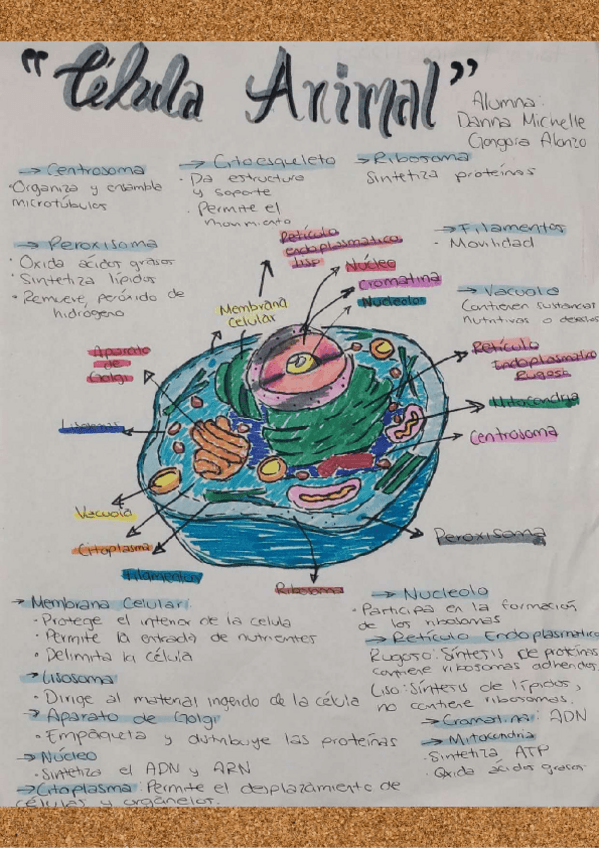 "Célula Animal"
Alumna:
Danna Michelle
Gongora Alonzo
→ Centrosoma
· Organiza y ensambla
microtúbulos
→ Citoesqueleto
· Da estructura
y soporte
· Permite el
movimiento
→ Ribosoma
Sintetiza proteínas
→ Peroxisoma
· Oxida ácidos grasos
· Sintetiza lípidos
· Remueve peróxido de
hidrógeno
→ Filamentos
· Movilidad
→ Vacuola
Contienen sustancias
nutritivas o desecho
Retículo
endoplasmatico
liso
Núcleo
Cromatina
Nucleolos
Membrana
Celular
Aparato
de
Golgi
Retículo
Endoplasmatico
Rugoso
Lisosomas
Mitocondria
Centrosoma
Vacuola
Citoplasma
Filamentos
Ribosoma
Peroxisoma
→ Membrana Celular:
· Protege el interior de la celula
· Permite la entrada de nutrientes
· Delimita la célula
→ Lisosoma
· Dirige al material ingerido de la célula
→ Aparato de Golgi
· Empaqueta y distribuye las proteínas
→ Núcleo
· Sintetiza el ADN y ARN
→ Citoplasma: Permite el desplazamiento de
células y organelos.
→ Nucleolo
· Participa en la formación
de los ribosomas
→ Retículo Endoplasmatico
Rugoso: Síntesis de proteínas
contiene ribosomas adheridos.
Liso: Síntesis de lípidos,
no contiene ribosomas.
→ Cromatina: ADN
→ Mitocondria
· Sintetiza ATP
· Oxida ácidos grasos